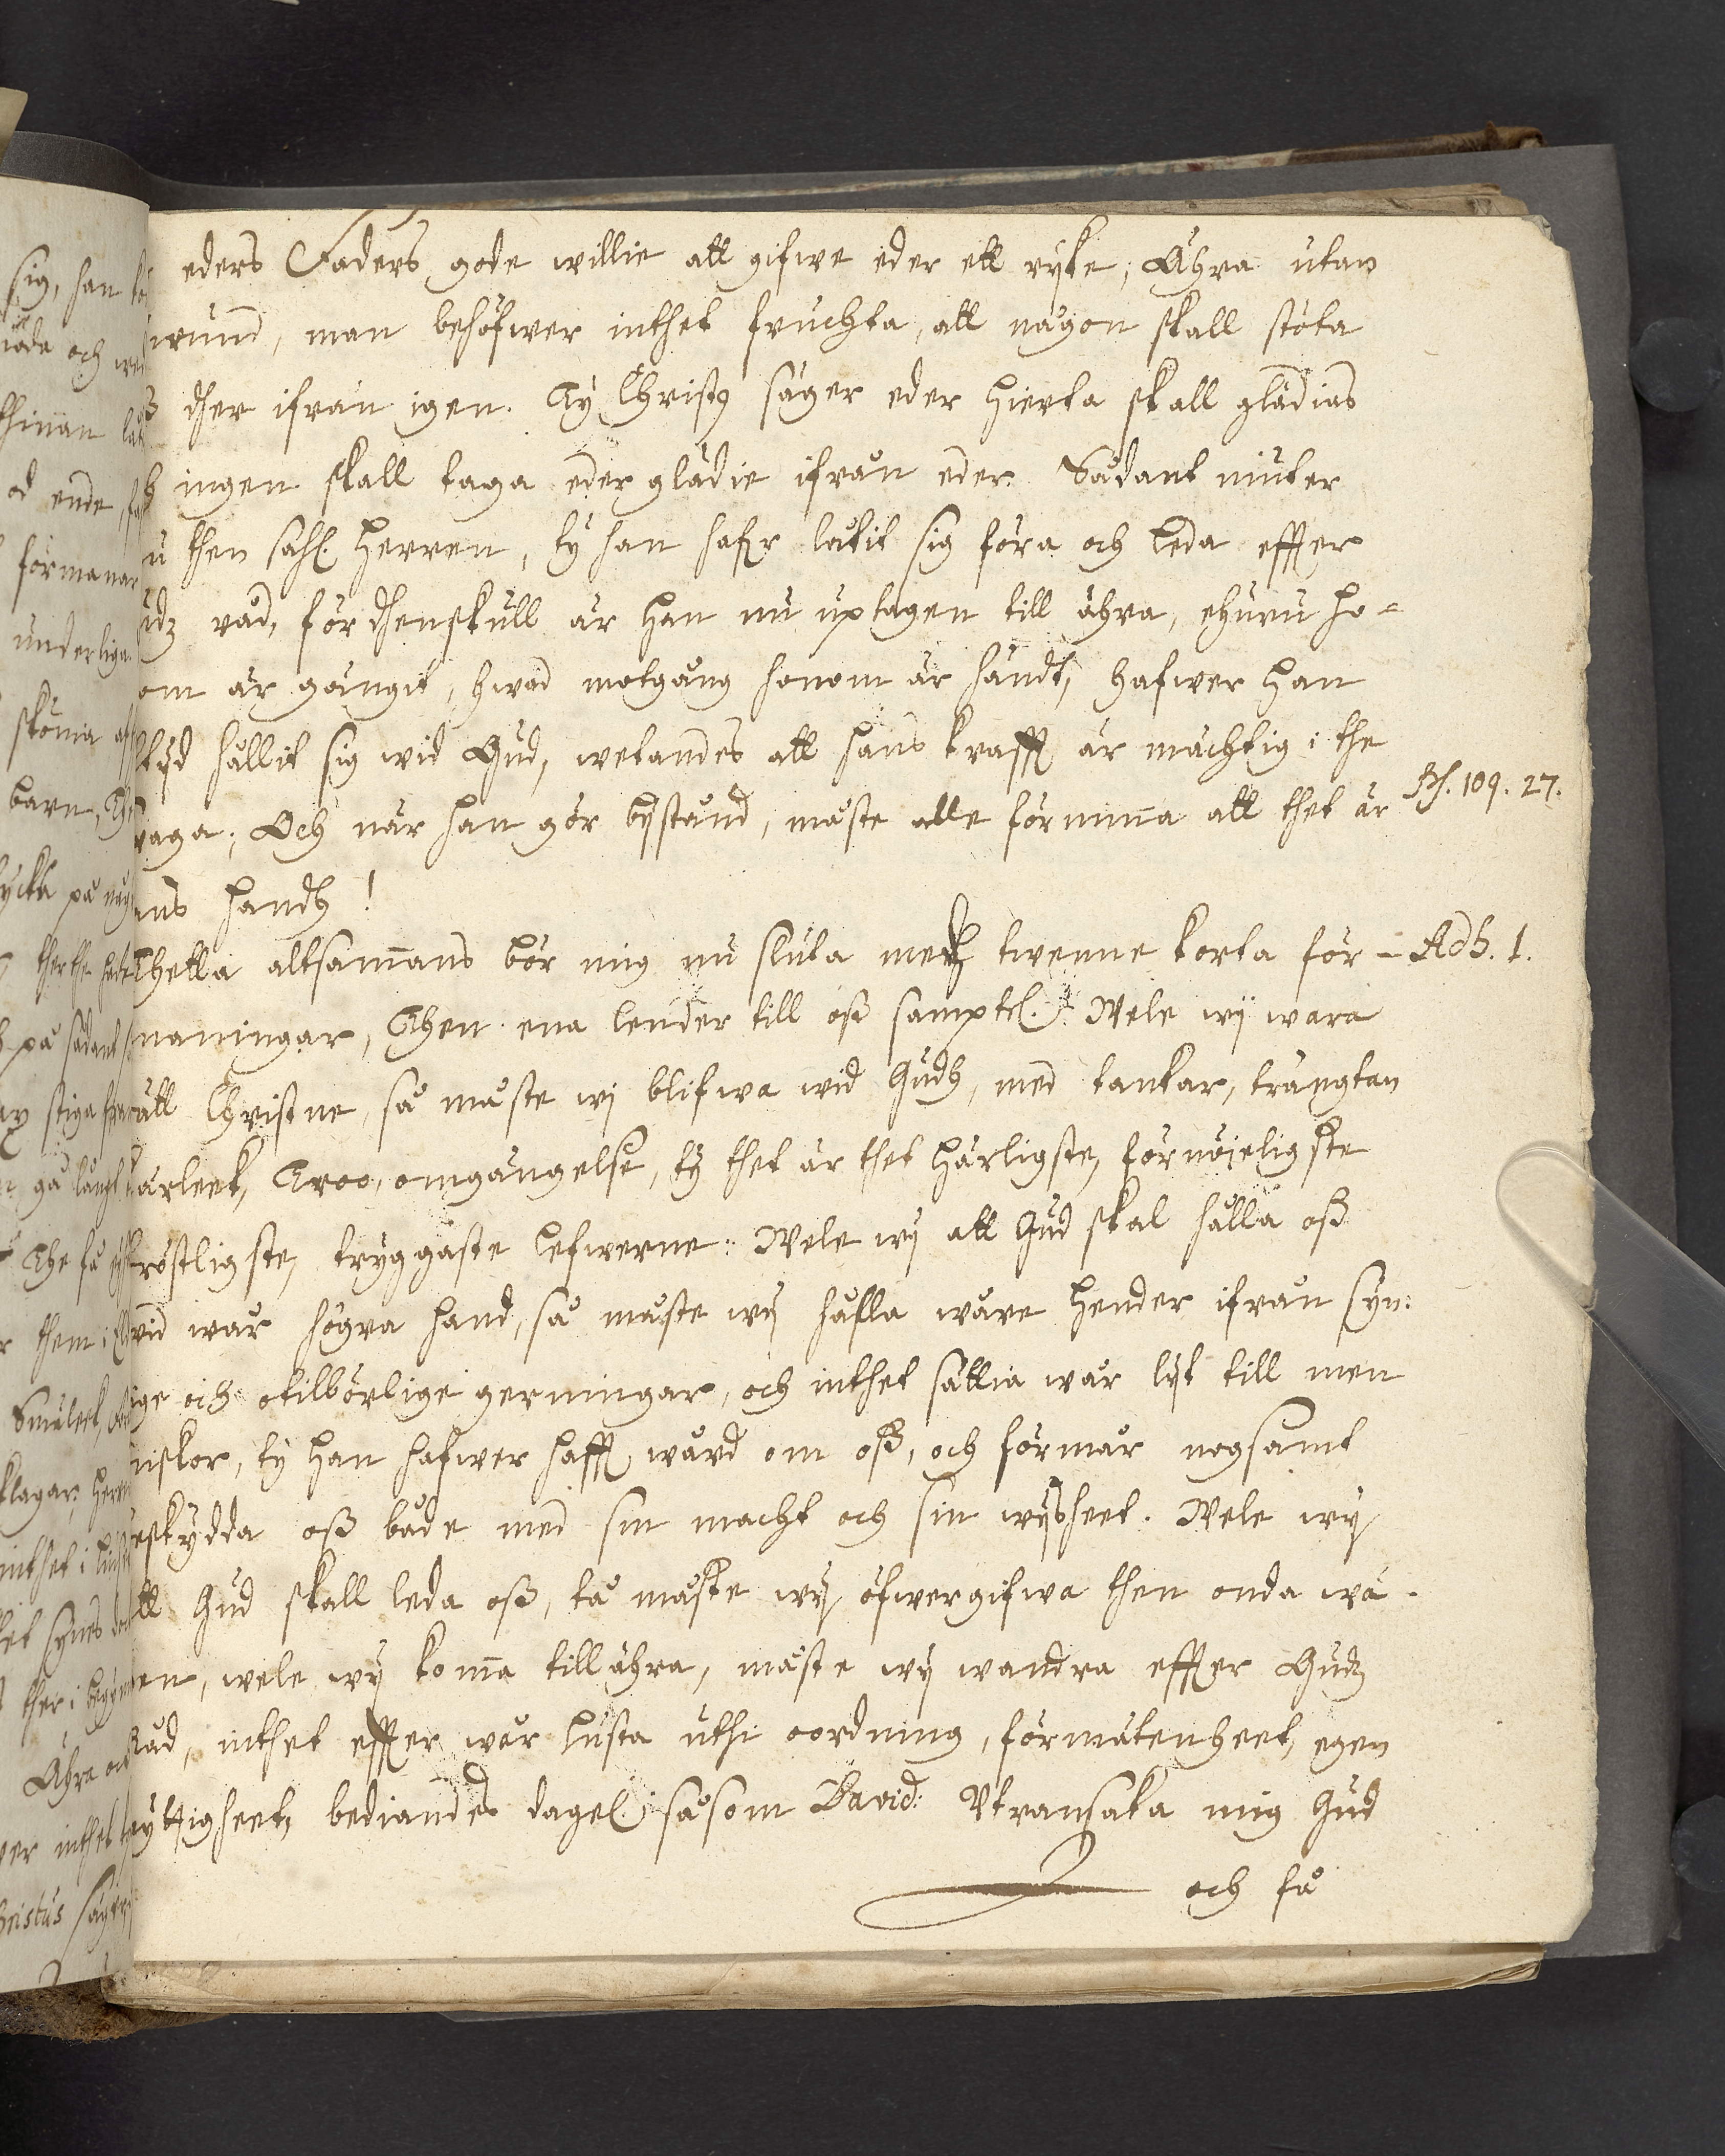 eders Faders gode willie att gifwe eder ett ryke; Ähra utan
wund, man behöfwer inthet fruchta, att någon skall stöta
dher ifrån igen. Ty Christ9 säger eder hierta skall glädias
ingen skall taga eder glädie ifrån eder. Sådant niuter
u then sahl. Herren, ty han hafr låtit sig föra och leda effter
udz råd, fördhenskull är han nu uptagen till ähra, ehuru ho-
om är gångit, hwad motgång honom är händt, hafwer han
tyd hållit sig wid Gud, wetandes att hans krafft är mächtig i the
waga; Och när han gör bystånd, måste alle förnima att thet är Ps. 109. 27.
ans handh!
Thetta altsammans bör mig nu sluta medh twenne korta för- Adh. 1.
maningar, Then ena lender till oss samptl. Wele wij wara
rätt Christne, så måste wij blifwa wid Gudh, med tankar, trängtan
kärleek, Troo, omgängelse, ty thet är thet härligste, förnöieligste
tröstligste, tryggaste lefwerne: Wele wij att Gud skal hålla oss
wid war högra hand, så måste wij hålla wåre hender ifrån syn:
ige och otilbörlige gerningar, och inthet sättia wår lijt till men
niskor, ty han hafwer hafft wård om oss, och förmår nogsamt
eskydda oss både med sin macht och sin wijsheet. Wele wij
att Gud skall leda oss, tå måste wij öfwergifwa then onda wä-
en, wele wij koma till ähra, måste wij wandra effter Gudz
Råd, inthet effter wår lusta uthi oordning, förmätenheet, egen
nyttigheet, bediandes dagel. såsom David: Utransaka mig Gud
och få